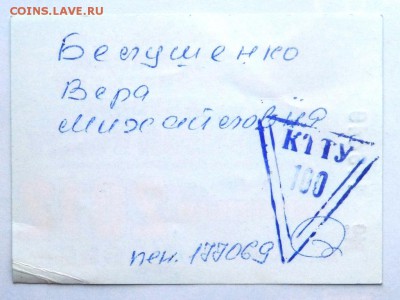 COINS.LAVE.RU
Бепушенко
Вера
Михайловна
КТТУ
100
пен. 177069